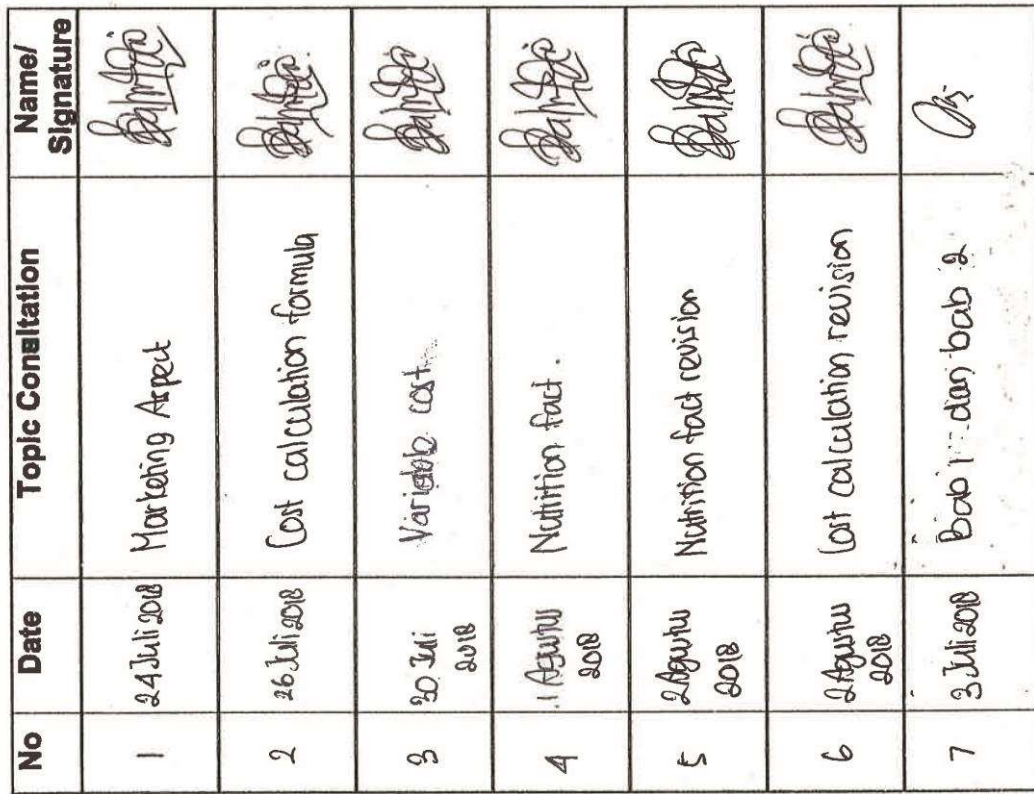 No Date Topic Consltation Name/
Signature
1 24 Juli 2018 Marketing Aspect
2 26 Juli 2018 Cost calculation formula
3 30 Juli
2018 Variable cost.
4 1 Agustus
2018 Nutrition fact.
5 2 Agustus
2018 Nutrition fact revision
6 2 Agustus
2018 Cost calculation revision
7 3 Juli 2018 Bab 1 dan bab 2